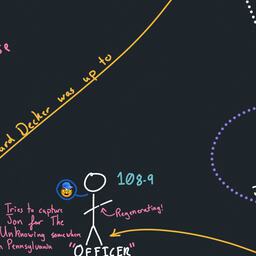 ard Decker was up to
108-9
Regenerating!
Tries to capture
Jon for The
Unknowing somewhere
Pennsylvania
"OFFICER"